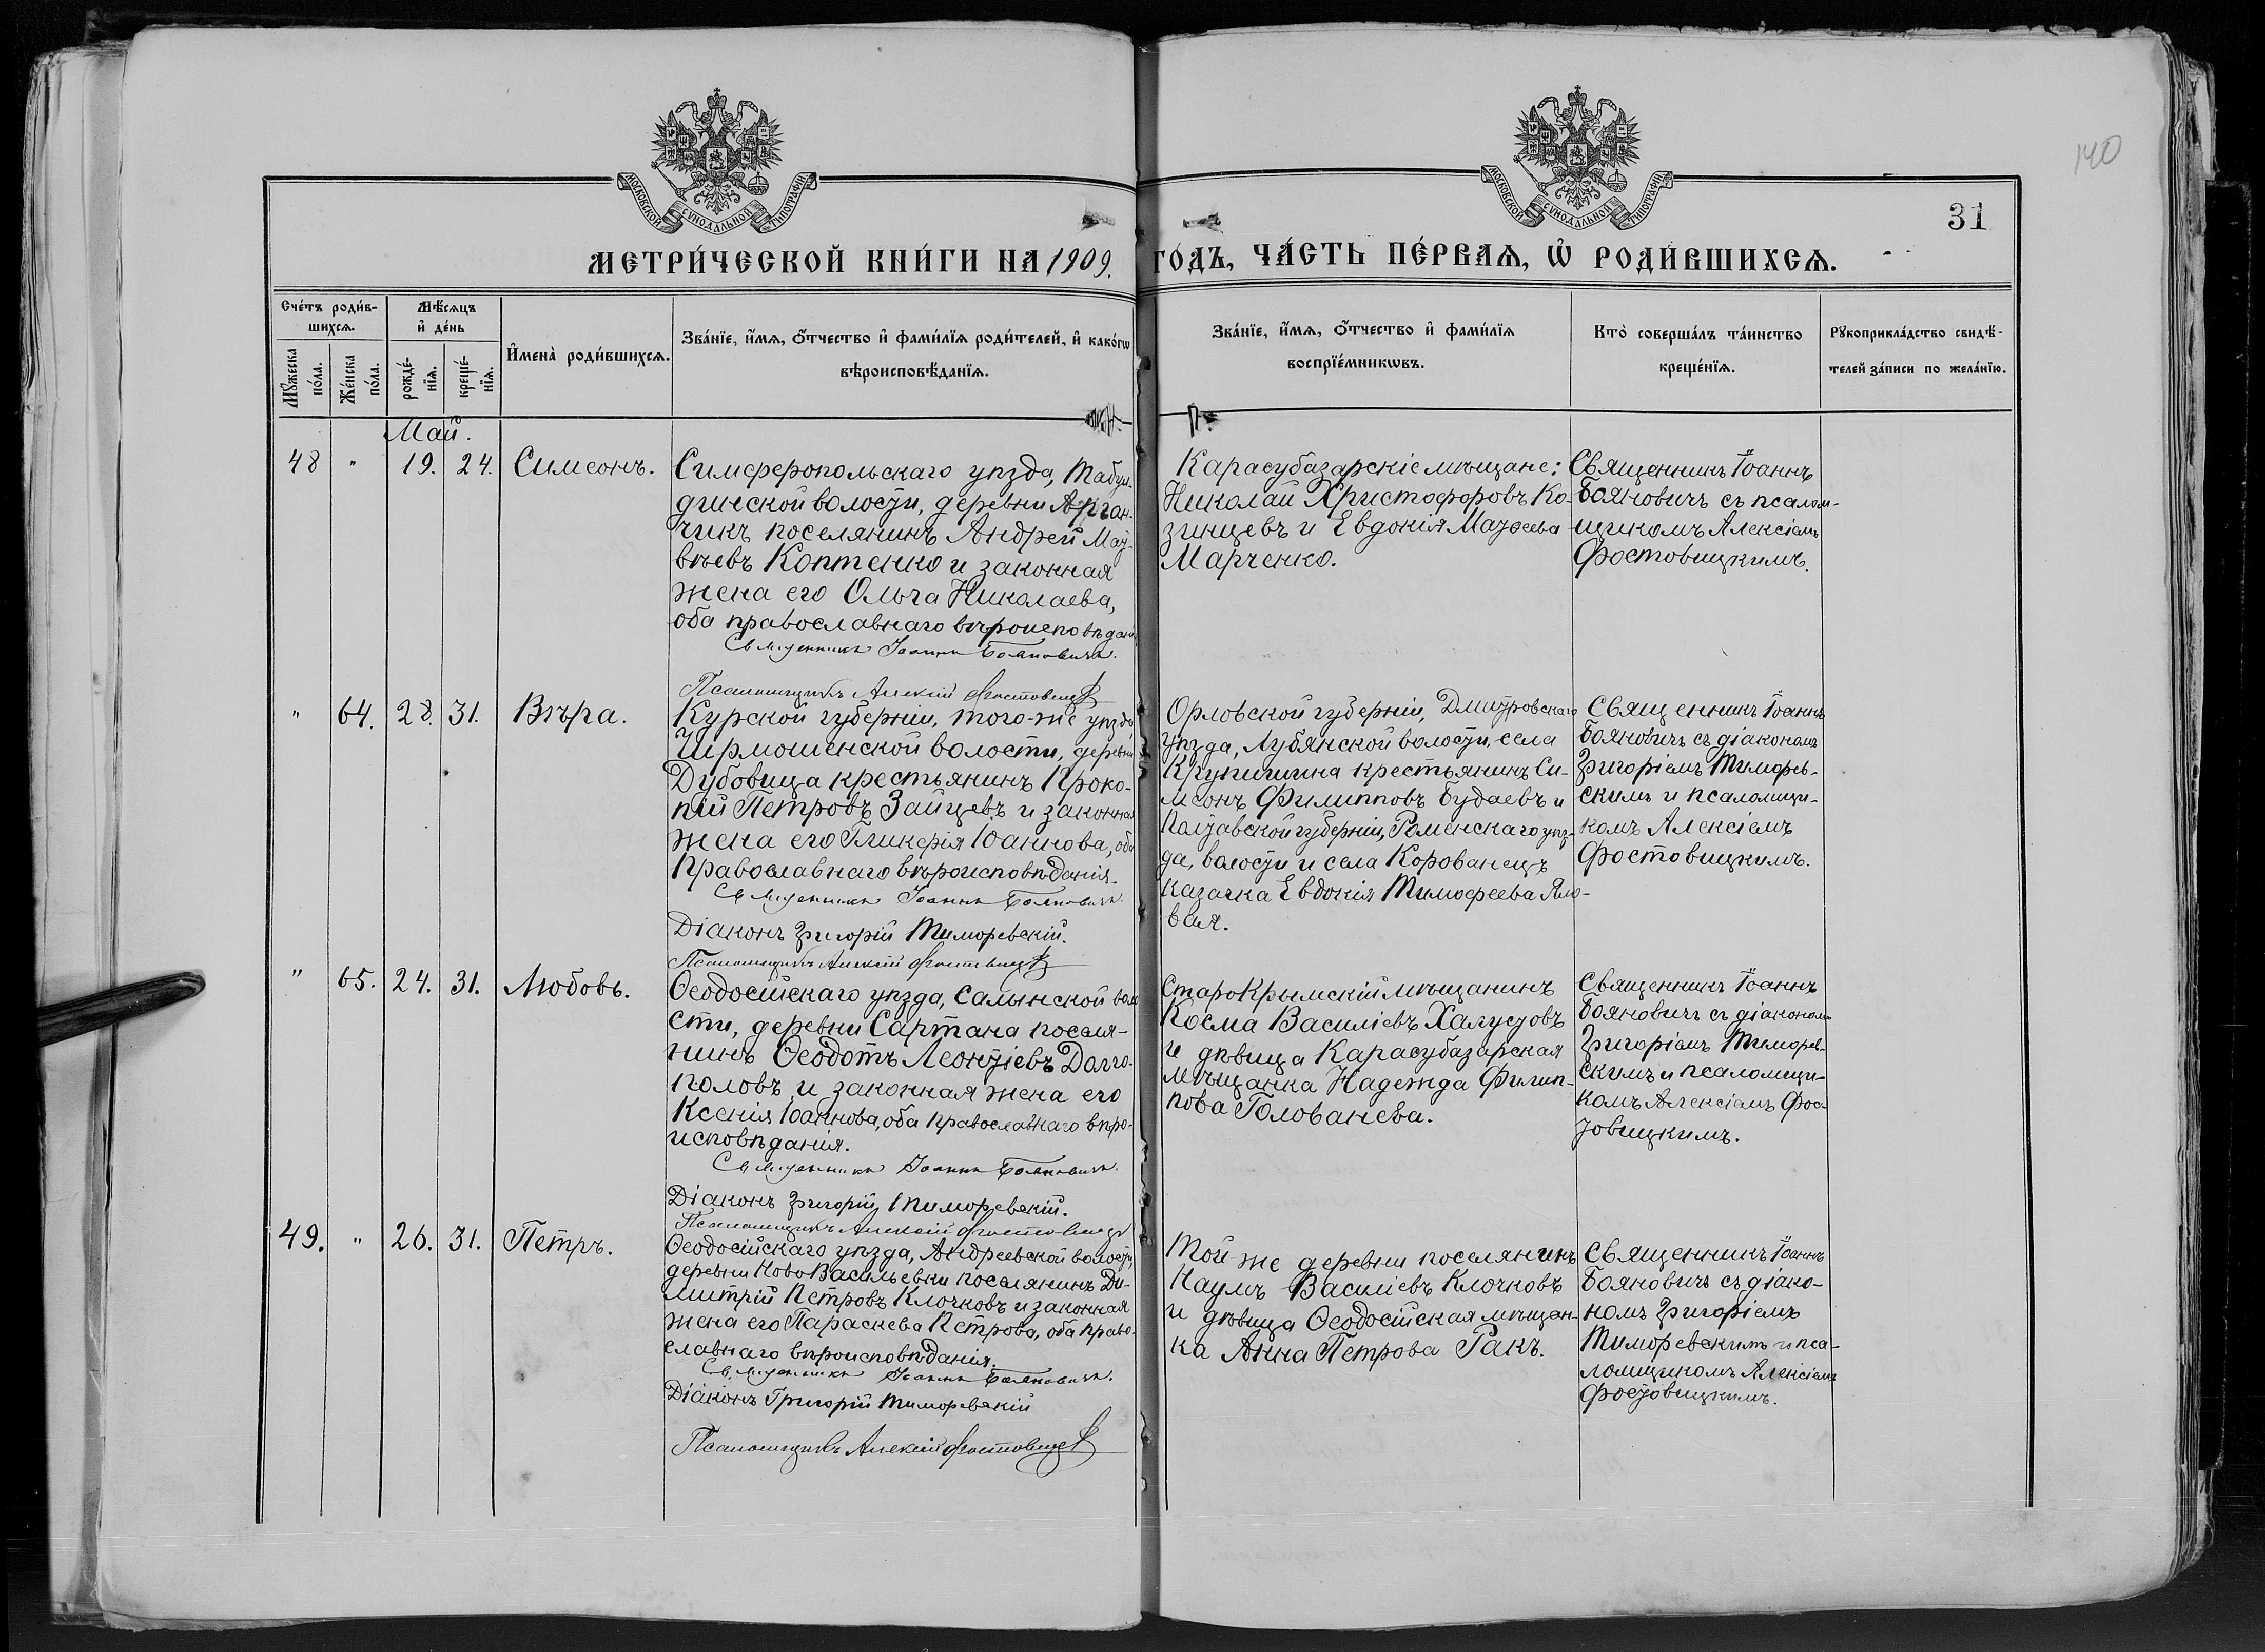 140
МОСКОВСКОЙ СѴНОДАЛЬНОЙ ТИПОГРАФІИ
МОСКОВСКОЙ СѴНОДАЛЬНОЙ ТИПОГРАФІИ
31
МЕТРИ́ЧЕСКОЙ КНИ́ГИ НА 1909. ГО́ДЪ, ЧА́СТЬ ПЕ́РВАѦ, Ѡ҆ РОДИ́ВШИХСѦ.
Сче́тъ роди́в-
шихсѧ.
Мꙋ́жеска
по́ла.
Же́нска
по́ла.
Мѣ́сѧцъ
и҆ де́нь
рожде́-
нїѧ.
креще́-
нїѧ.
И҆мена̀ роди́вшихсѧ.
Зва́нїе, и҆́мѧ, ѻ҆́тчество и҆ фами́лїѧ роди́телей, и҆ како́гѡ
вѣроисповѣ́данїѧ.
Зва́нїе, и҆́мѧ, ѻ҆́тчество и҆ фами́лїѧ
воспрїе́мникѡвъ.
Кто̀ соверша́лъ та́инство
креще́нїѧ.
Рꙋкоприкла́дство свидѣ́-
телей за́писи по жела́нїю.
Май.
48 " 19. 24. Симеонъ.
Симферопольскаго уѣзда, Табул-
динской волости, деревни Арган-
чикъ поселянинъ Андрей Мат-
вѣевъ Коптенко и законная
жена его Ольга Николаева,
оба православнаго вѣроисповѣданія
Священникъ Іоаннъ Бояновичъ.
Псаломщикъ Алексій Фостовицк
Карасубазарскіе мѣщане:
Николай Христофоровъ Ко-
зинцевъ и Евдокія Матѳеева
Марченко.
Священникъ Іоаннъ
Бояновичъ съ псалом-
щикомъ Алексіемъ
Фостовицкимъ.
" 64. 28. 31. Вѣра.
Курской губерніи, того-же уѣзда
Чермошенской волости, деревни
Дубовица крестьянинъ Проко-
пій Петровъ Зайцевъ и законная
жена его Гликерія Іоаннова, оба
православнаго вѣроисповѣданія.
Священникъ Іоаннъ Бояновичъ.
Діаконъ Григорій Тиморевскій.
Псаломщикъ Алексій Фостовицк
Орловской губерніи, Дмитровскаго
уѣзда, Лубянской волости, села
Крупишина крестьянинъ Си-
меонъ Филипповъ Будаевъ и
Полтавской губерніи, Роменскаго уѣз-
да, волости и села Корованецъ
казачка Евдокія Тимоѳеева Яло-
вая.
Священникъ Іоаннъ
Бояновичъ съ діакономъ
Григоріемъ Тиморев-
скимъ и псаломщи-
комъ Алексіемъ
Фостовицкимъ.
" 65. 24. 31. Любовь.
Ѳеодосійскаго уѣзда, Салынской воло
сти, деревни Сартана поселя-
нинъ Ѳеодотъ Леонтіевъ Долго-
половъ и законная жена его
Ксенія Іоаннова, оба православнаго вѣро-
исповѣданія.
Священникъ Іоаннъ Бояновичъ.
Діаконъ Григорій Тиморевскій.
Псаломщикъ Алексій Фостовицк
Старокрымскій мѣщанинъ
Косма Василіевъ Халустовъ
и дѣвица Карасубазарская
мѣщанка Надежда Филип-
пова Голованева.
Священникъ Іоаннъ
Бояновичъ съ діакономъ
Григоріемъ Тиморев-
скимъ и псаломщи-
комъ Алексіемъ Фос-
товицкимъ.
49. " 26. 31. Петръ.
Ѳеодосійскаго уѣзда, Андреевской волости,
деревни НовоВасильевки поселянинъ Ди-
митрій Петровъ Клочковъ и законная
жена его Параскева Петрова, оба право-
славнаго вѣроисповѣданія.
Священникъ Іоаннъ Бояновичъ.
Діаконъ Григорій Тиморевскій
Псаломщикъ Алексій Фостовицк
Той-же деревни поселянинъ
Наумъ Василіевъ Клочковъ
и дѣвица Ѳеодосійская мѣщан-
ка Анна Петрова Ракъ.
Священникъ Іоаннъ
Бояновичъ съ діако-
номъ Григоріемъ
Тиморевскимъ и пса-
ломщикомъ Алексіемъ
Фостовицкимъ.